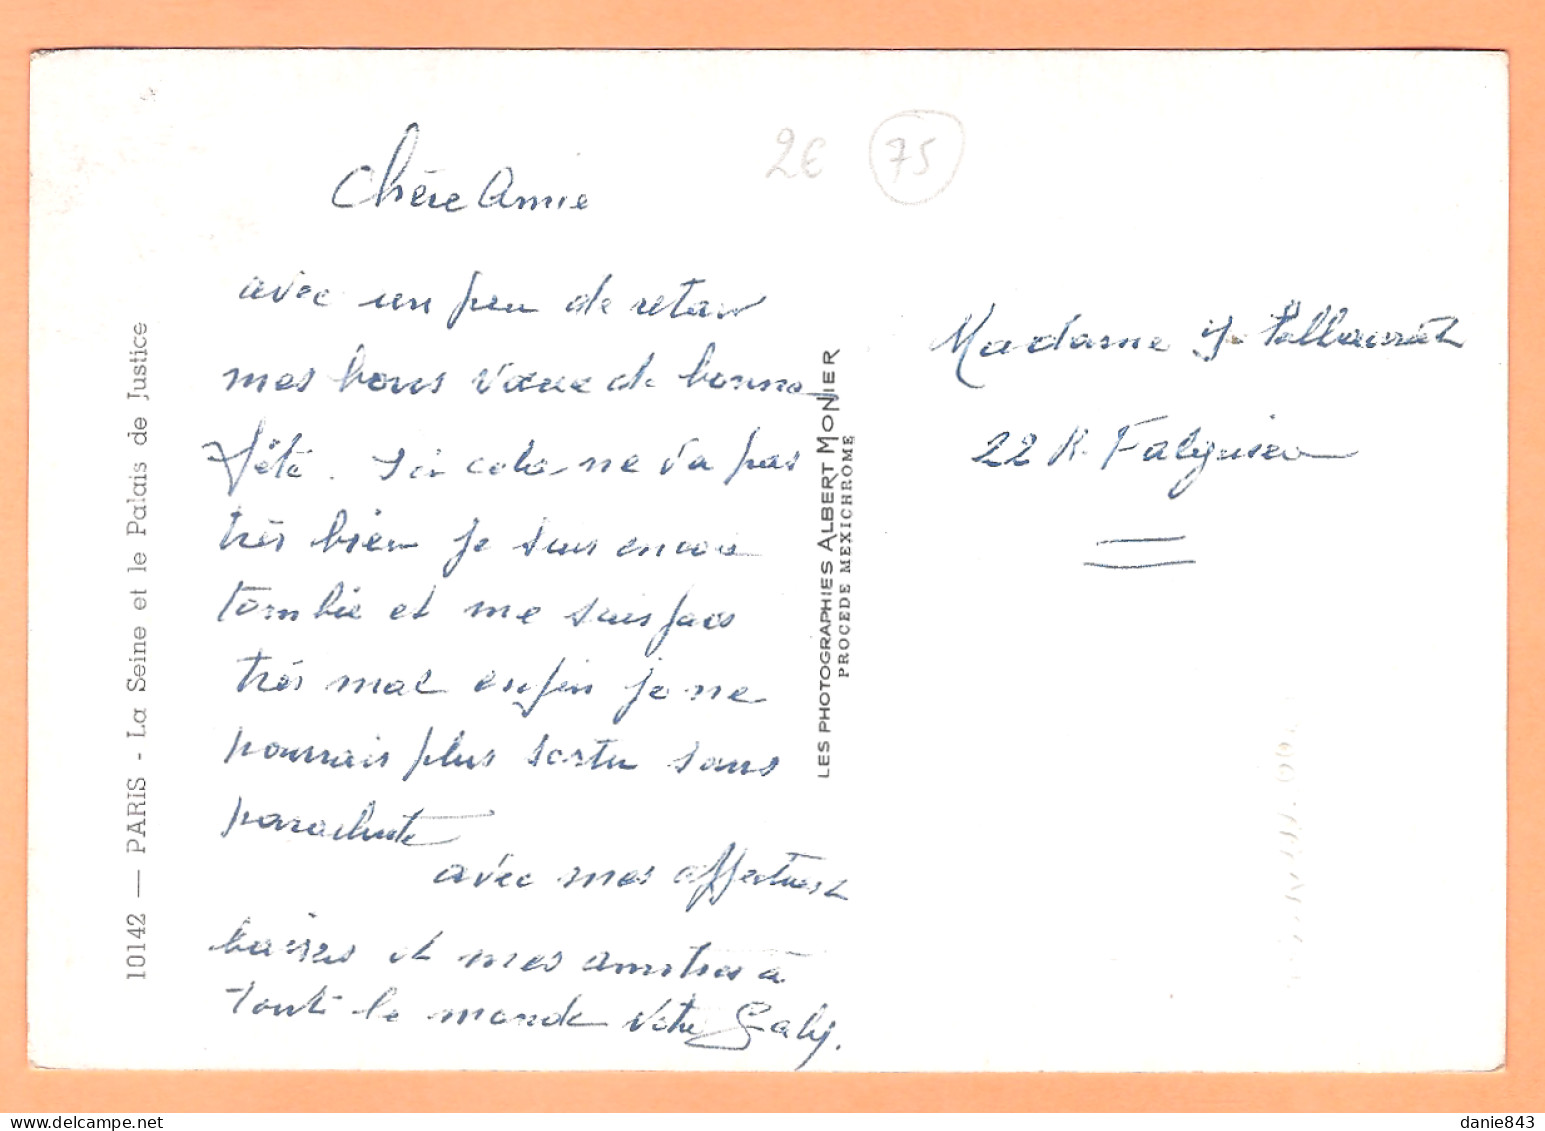 10142 — PARIS - La Seine et le Palais de Justice
Chère Amie
avec un peu de retar
mes bons vœux de bonne
fête. Ici cela ne va pas
très bien je suis encore
tombée et me suis fais
très mal enfin je ne
pourrais plus sortir sans
parachute
avec mes affectueux
baisers et mes amitiés à
tout le monde votre Gaby.
LES PHOTOGRAPHIES ALBERT MONIER
PROCEDE MEXICHROME
2€ 75
Madame
22 R. Falguiere
danie843